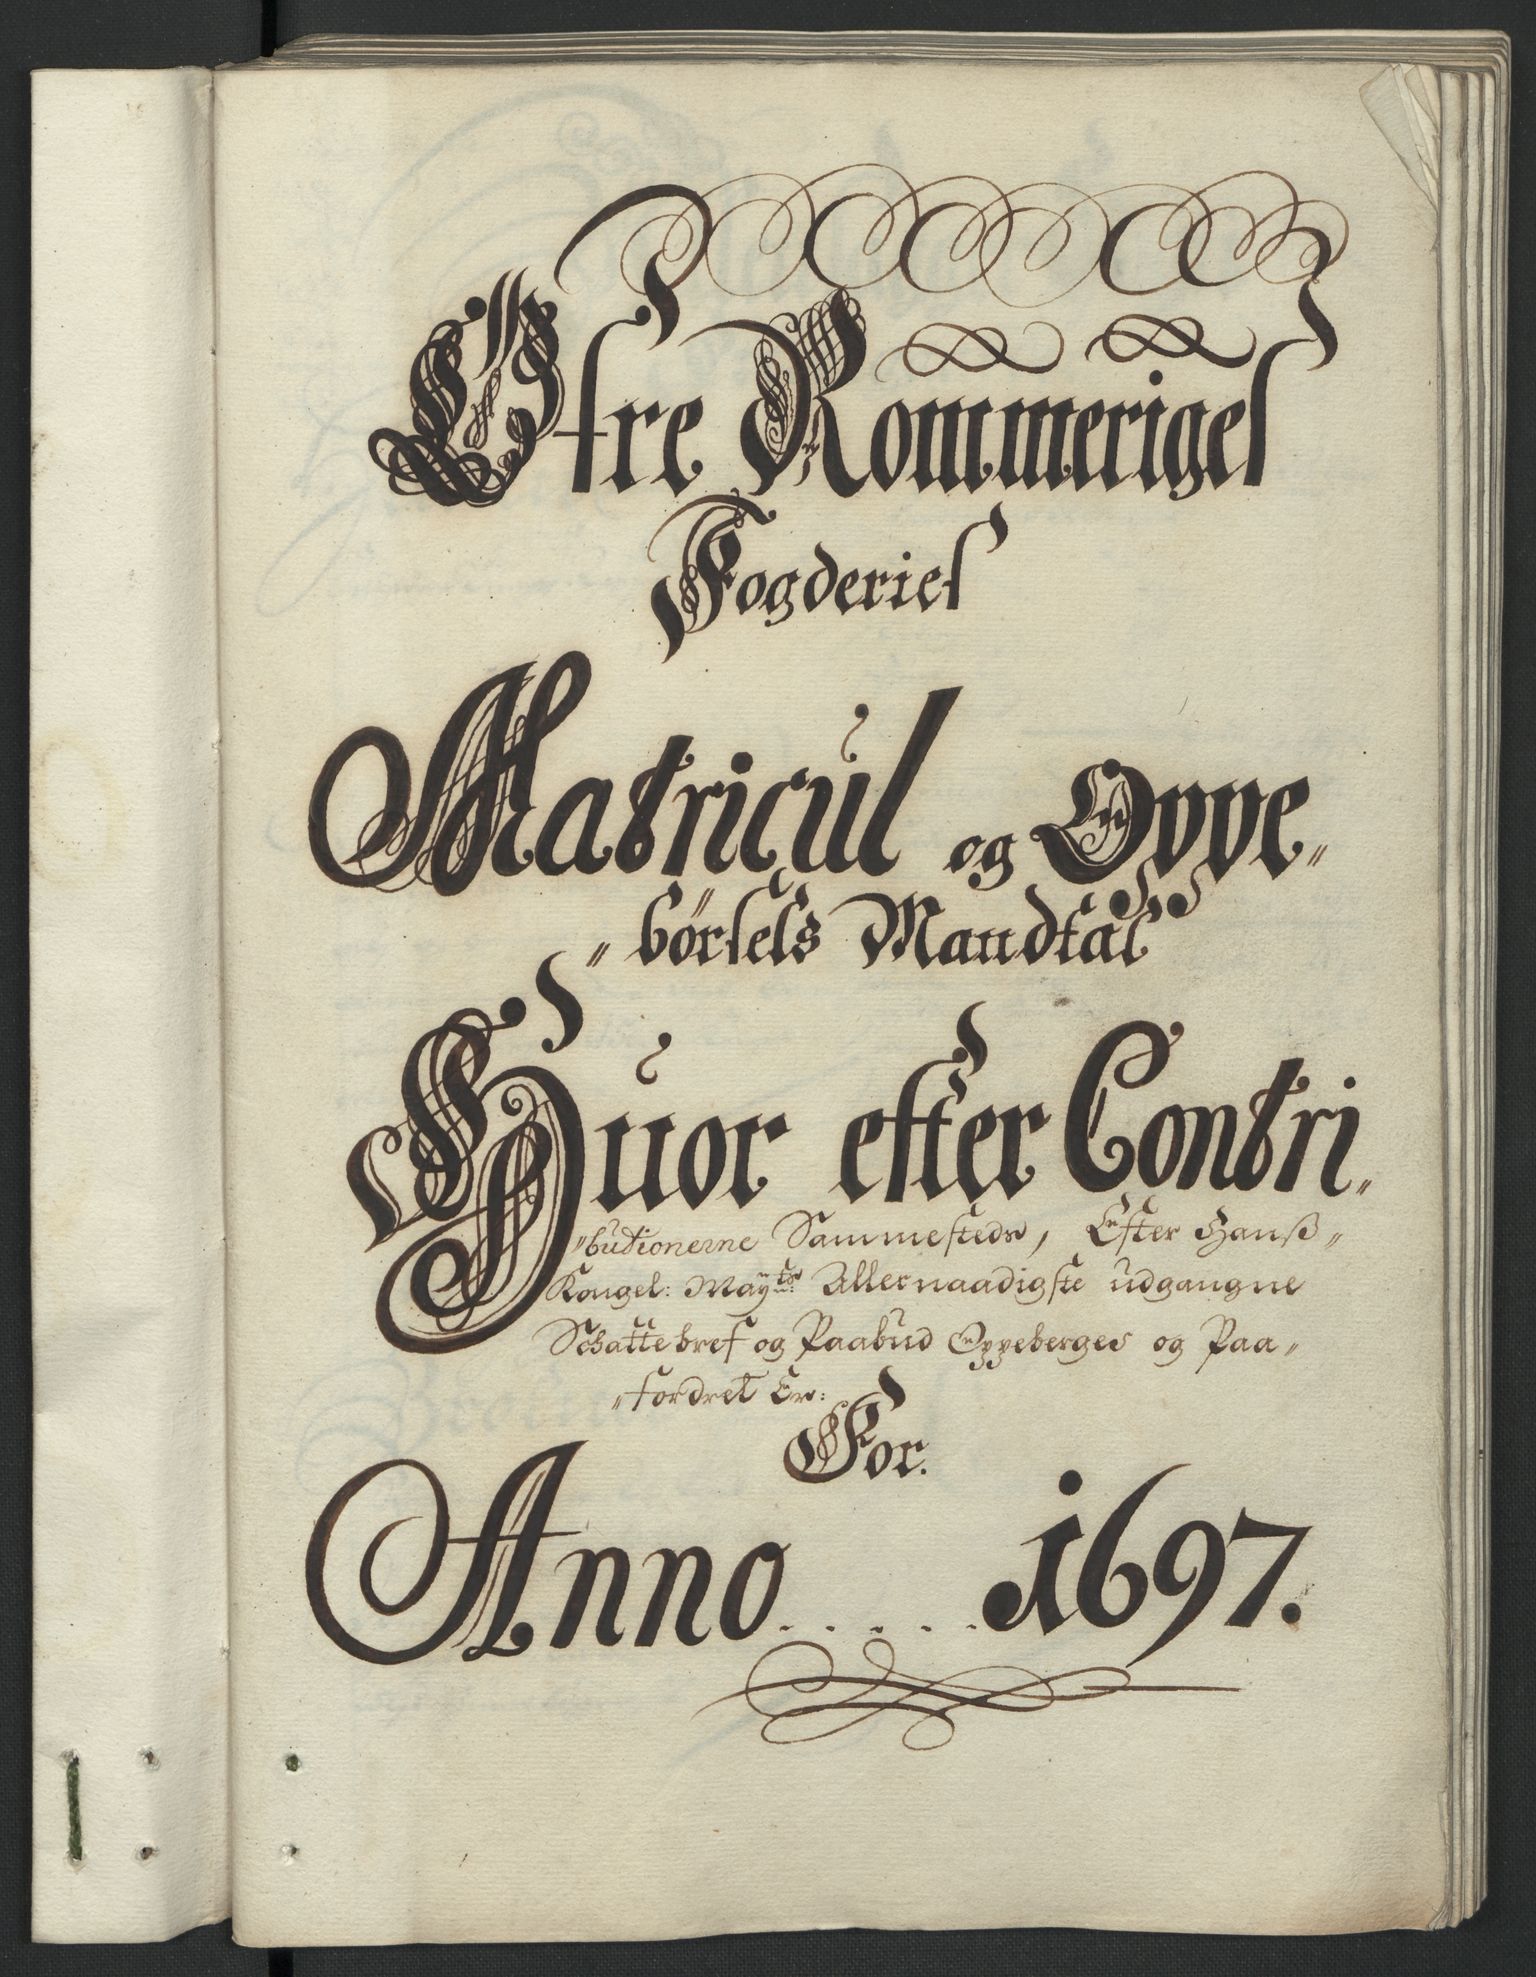 Øfre Rommeriges
Fogderies
Matricul og Oppe„
„børsels Mandtal
Huor efter Contri„
„butionerne Sammesteds, Efter Hanß„
Kongel: Mayts: Allernaadigste udgangne
Schattebref og Paabud Oppeberges og Paa„
„fordret Er:
For.
Anno.....1697.